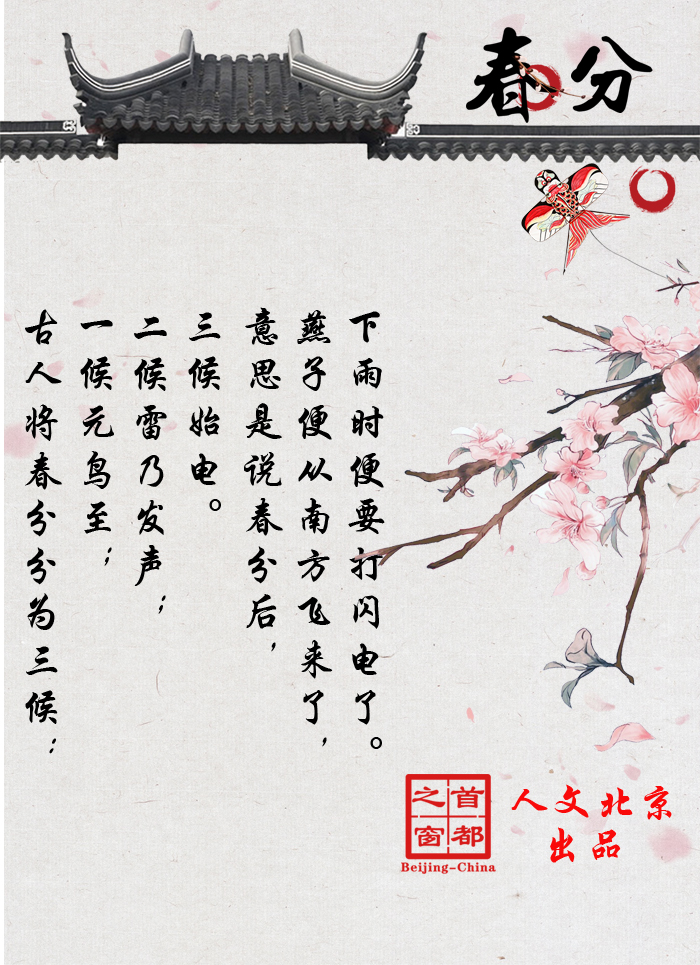 春分
古人将春分分为三候：
一候元鸟至；
二候雷乃发声；
三候始电。
意思是说春分后，
燕子便从南方飞来了，
下雨时便要打闪电了。
首都
之窗
Beijing-China
人文北京
出品